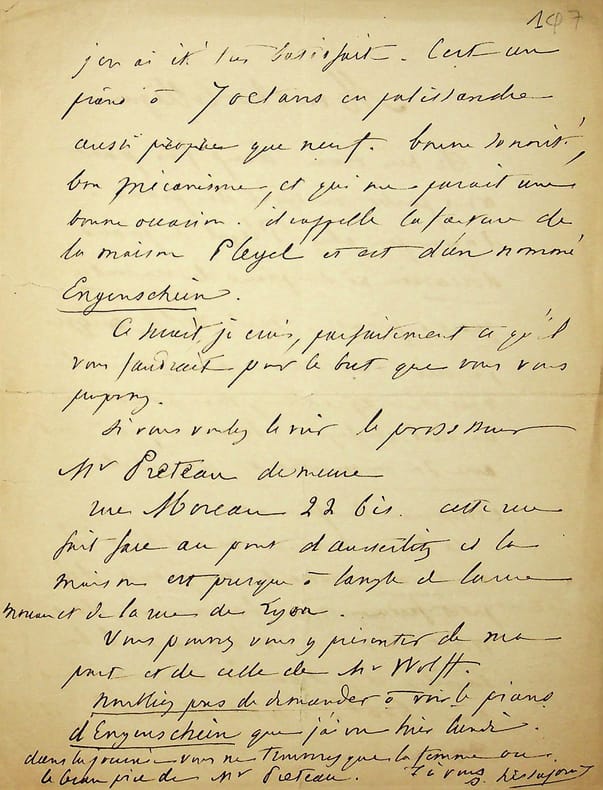 147
j'en ai été très satisfait. C'est un
piano à 7 octaves en palissandre
aussi propre que neuf. bonne sonorité,
bon mécanisme, et qui me parait une
bonne occasion. il rappelle la facture de
la maison Pleyel et est d'un nommé
Engenschein.
Ce serait, je crois, parfaitement ce qu'il
vous faudrait pour le but que vous vous
proposez.
Si vous voulez le voir le possesseur
Mr Preteau demeure
rue Moreau 22 bis. cette rue
fait face au pont d'austerlitz et la
maison est presque à l'angle de la rue
Moreau et de la rue de Lyon.
Vous pourrez vous y présenter de ma
part et de celle de Mr Wolff.
N'oubliez pas de demander à voir le piano
d'Engenschein que j'ai vu hier lundi.
dans la journée vous ne trouverez que la femme ou
le beau père de Mr Preteau. à vous